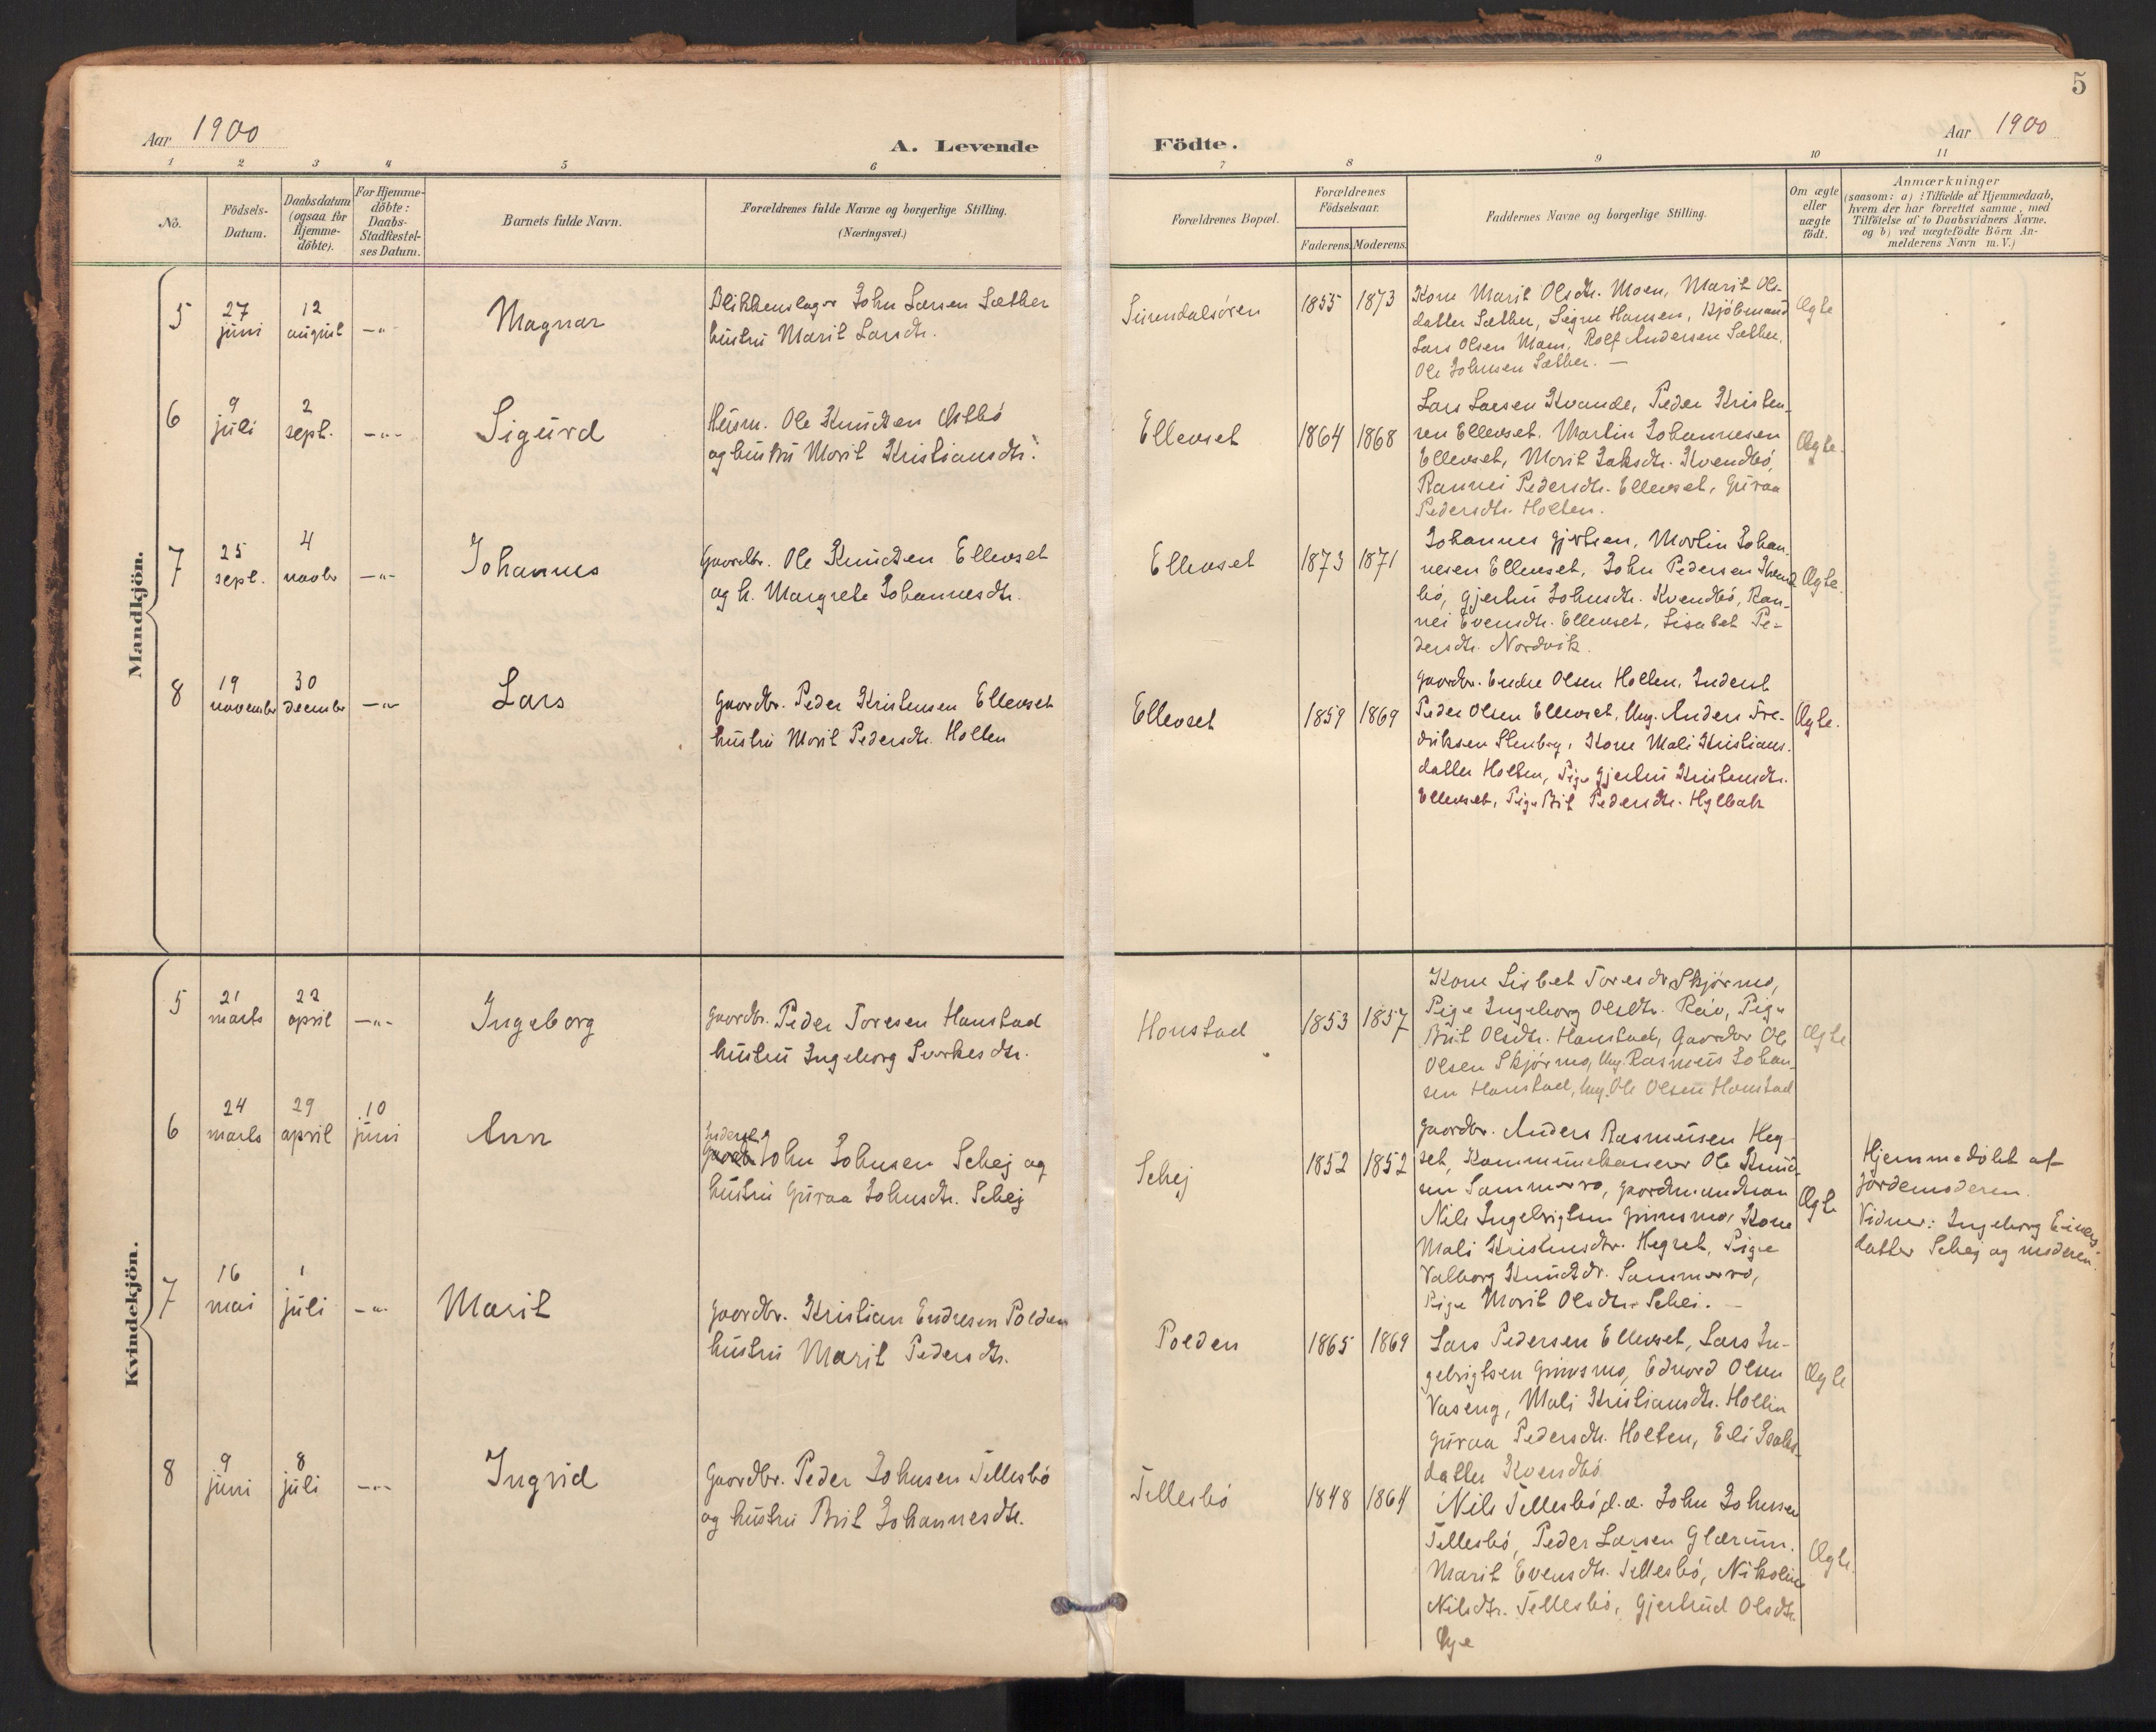 5
Aar 1900
A. Levende
Födte.
Aar 1900
1 2 3 4 5 6 7 8 9 10 11
No.
Födsels-
Datum.
Daabsdatum
(ogsaa for
Hjemme-
döbte).
For Hjemme-
döbte:
Daabs-
Stadfæstel-
ses Datum.
Barnets fulde Navn.
Forældrenes fulde Navne og borgerlige Stilling.
(Næringsvei.)
Forældrenes Bopæl.
Forældrenes
Födselsaar.
Faderens. Moderens.
Faddernes Navne og borgerlige Stilling.
Om ægte
eller
uægte
födt.
Anmærkninger
(saasom: a) i Tilfælde af Hjemmedaab,
hvem der har forrettet samme, med
Tilföielse af to Daabsvidners Navne,
og b) ved uægtefödte Börn An-
melderens Navn m. V.)
Mandkjön.
5
27 juni
12 august
-"-
Magnar
Blikkenslager John Larsen Sæther
hustru Marit Larsdtr.
Surendalsøren
1855 1873
Kone Marit Olsdtr. Moen, Marit Ols-
datter Sæther, Signe Hansen, Kjøbmand
Lars Olsen Moen, Rolf Andersen Sæther,
Ole Johnsen Sæther. —
Ægte
6
9 juli
2 sept.
-"-
Sigurd
Husm. Ole Knudsen
og hustru Marit Kristiansdtr.
Ellevset
1864 1868
Lars Larsen Kvande, Peder Kristen-
sen Ellevset, Martin Johannesen
Ellevset, Marit Isaksdtr. Kvendbö,
Rannei Pedersdtr. Ellevset, Guraa
Pedersdtr. Holten.
Ægte.
7
25 sept.
4 novbr
-"-
Johannes
Gaardbr. Ole Knudsen Ellevset
og h. Margrete Johannesdtr.
Ellevset
1873 1871
Johannes Gjertsen, Martin Johan-
nesen Ellevset, John Pedersen Kvend
bö, Gjertru Johnsdtr. Kvendbö, Ran-
nei Evensdtr. Ellevset, Lisabet Pe-
dersdtr. Nordvik.
Ægte.
8
19 november
30 december
-"-
Lars
Gaardbr. Peder Kristensen Ellevset
hustru Marit Pedersdtr. Holten
Ellevset
1859 1869
Gaardbr. Endre Olsen Holten, Inderst
Peder Olsen Ellevset, Ung. Anders Fre-
driksen Stenberg, Kone Mali Kristians-
datter Holten, Pige Gjertru Kristensdtr.
Ellevset, Pige Brit Pedersdtr. Hylbak
Ægte.
Kvindekjön.
5
21 marts
22 april
-"-
Ingeborg
Gaardbr. Peder Toresen Honstad
hustru Ingeborg Sverkesdtr.
Honstad
1853 1857
Kone Lisbet Toresdr. Skjørmo,
Pige Ingeborg Olsdtr. Røv, Pige
Brit Olsdtr. Honstad, Gaardbr Ole
Olsen Skjørmo, Ung. Rasmus Johan-
sen Honstad, Ung. Ole Olsen Honstad
Ægte
6
24 marts
29 april
10 juni
Ann
Inderst
John Johnsen Schej og
hustru Guraa Johnsdtr. Schej
Schej
1852 1852
Gaardbr. Anders Rasmussen Heg-
set, Kommunekasserer Ole Knud-
sen Sommerro, gaardmandssøn
Nils Ingebrigtsen Grimsmo, Kone
Mali Kristensdtr. Hegset, Pige
Valborg Knudsdr. Sommerro,
Pige Marit Olsdtr. Schei. —
Ægte
Hjemmedöbt af
Jordemoderen.
Vidner: Ingeborg Einars-
datter Schej og moderen.
7
16 mai
1 juli
-"-
Marit
Gaardbr. Kristian Endresen Polden
hustru Marit Pedersdtr.
Polden
1865 1869
Lars Pedersen Ellevset, Lars In-
gebrigtsen Grimsmo, Edvard Olsen
Vaseng, Mali Kristiansdtr. Holten
Guraa Pedersdtr. Holten, Eli Isaks-
datter Kvendbö
Ægte
8
9 juni
8 juli
-"-
Ingrid
Gaardbr. Peder Johnsen Tellesbö
og hustru Brit Johannesdtr.
Tellesbö
1848 1864
Nils Tellesbö d.æ. John Johnsen
Tellesbö, Peder Larsen Glærum.
Marit Evensdtr. Tellesbö, Nikoline
Nilsdtr. Tellesbö, Gjertrud Olsdtr.
Øye
Ægte.